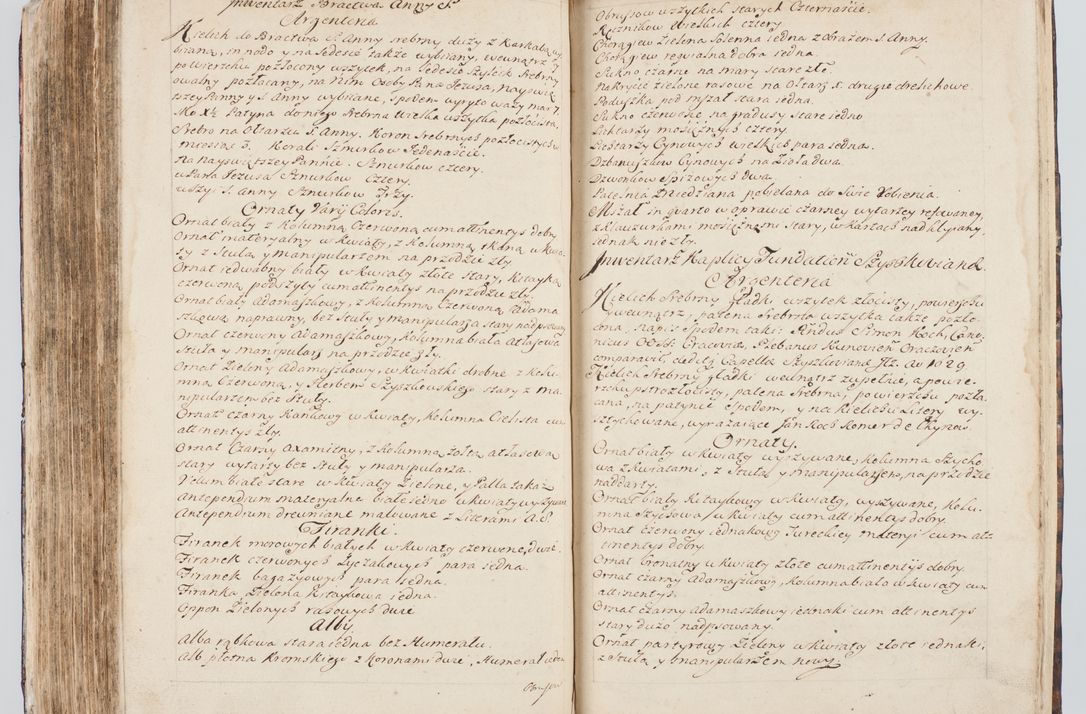 Inwentarz Bractwa Anny S.
Argenteria
Kielich do Bractwa S. Anny srebrny duży z Karkała wy
bianą, in nodo y na Sedesie także wybiiany, wewnątrz y
powierzchu pozłocony wszytek, na Sedesie Szyscik Srebrny
owalny pozłacany, na nim Osoby Pana Jezusa, Nayswię
tszey Panny y S. Anny wybiiane, Spodem wyryto waży mar 7.
Patyna do niego Srebrna wielka wszytka pozłocista,
Srebro na Ołtarzu S. Anny. Koron Srebrnych pozłocistych w
miescu 3. Korali Sznurkow Jedenascie.
Na Nayswiętszey Pannie. Sznurkow cztery.
u Pana Jezusa Sznurkow Cztery.
u Szyi S. Anny Sznurkow Trzy.
Ornaty Varij Coloris.
Ornat biały z Kolumną Czerwoną cum attinentys dobry
Ornat materyalny w kwiaty, z Kolumną tkaną w kwia
ty z Stułą y manipularzem na przodzie zły
Ornat iedwabny biały w kwiaty złote stary, Kitayką
czerwoną podszyty cum attinentys na przodzie zły.
Ornat biały Adamaszkowy, z Kolumną Czerwoną Adama
szkową naprawny, bez Stuły y manipularza stary nadpsowany
Ornat czerwony Adamaszkowy, Kolumna biała Atłasowa
Stuła y manipularz na przodzie zły.
Ornat Zielony Adamaszkowy, w kwiatki drobne z Kolu
mną Czerwoną, y Herbem Szyszkowskiego stary z ma
nipularzem bez Stuły.
Ornat czarny Kankowy w kwiaty, Kolumna Cielista cum
attinentys zły.
Ornat Czarny Axamitny, z Kolumną żołtą atłasową
stary wytarty bez Stuły y manipularza.
Velum białe stare w kwiaty Zielone, y Palla takaż
Antependium materyalne białe iedno w kwiaty wyszywane
Antependium drewniane malowane z Literami A. S.
Firanki.
Firanek morowych białych w kwiaty czerwone, dwie.
Firanek czerwonych Łyczakowych para iedna.
Firanek bagazyowych para iedna.
Firanka Zielona Kitaykowa iedna.
Oppon Zielonych rasowych dwie
Alby
Alba rąbkowa stara iedna bez Humerału.
Alb płotna Kromskiego z Koronami dwie, Humerał ieden
Obrusow
Obrusow wszytkich starych Czternascie.
Ręcznikow Wielkich cztery
Chorągiew Zielona Solenna iedna z obrazem S. Anny.
Chorągiew requialna dobra iedna.
Sukno czarne na mary stare złe.
Nakrycie zielone rasowe na Ołtarz 1. drugie drelichowe.
Poduszka pod mszał stara iedna.
Sukno czerwone na gradusy stare iedno
Lichtarzy mosięznych cztery.
Lichtarzy Cynowych wielkich para iedna.
Dzbanuszkow Cynowych na Zioła dwa.
Dzwonkow Spiżowych dwa.
Patelnia Miedziana pobielana do Swic robienia.
Mszał in quarto w oprawie czarney wytartey
z Klauzurkami mosięznemi stary, w kartach nadklyiany,
iednak nie zły.
Inwentarz Kaplicy Fundationis Szyszkoviana.
Argenteria
Kielich Srebrny gładki wszytek złocisty, powierzchu
y wewnątrz, patena Srebrna wszytka także pozło
cona, napis Spodem taki: Rndus Simon Koch, Cano
nicus Cracoviæ, Plebanus
comparavit, dedit Capellæ Szyszkovianæ Aō 1629
Kielich Srebrny gładki wewnątrz zupełnie, a powie
rzchu pstrozłocisty, patena Srebrna, powierzchu pozła
cana, na patynie Spodem, y na Kielichu Litery wy
sztychowane, wyrażaiące Jan Koch Komer de
Ornaty.
Ornat biały w kwiaty wyszywane, Kolumna Szycho
wa z kwiatami, z Stułą y manipularzem, na przodzie
naddarty.
Ornat biały Kitaykowy w kwiaty, wyszywane, Kolu
mna Szychowa w kwiaty cum attinentys dobry.
Ornat czerwony iednakowy Tureckiey materyi cum at
tinentys dobry.
Ornat Gronatny w kwiaty złote cum attinentys dobry.
Ornat czarny Adamaszkowy, Kolumna biała w kwiaty cum
attinentys.
Ornat czarny adamaszkowy iednaki cum attinentys
stary dużo nadpsowany.
Ornat partyrowy Zielony w kwiaty złote iednaki,
z Stułą y manipularzem nowy.